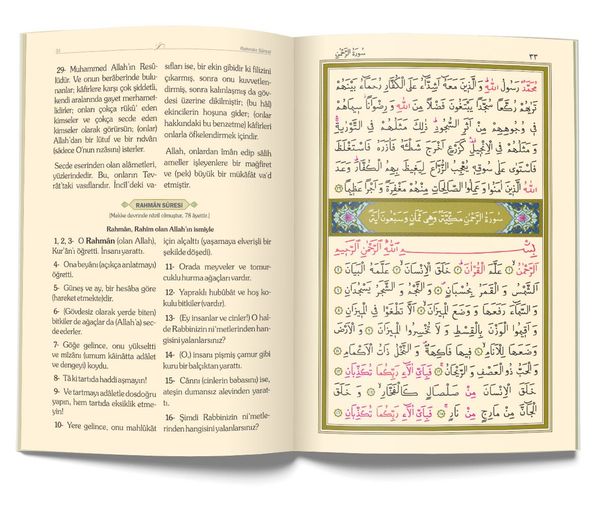 Rahmân Sûresi
29- Muhammed Allah'ın Resû-
lüdür. Ve onun berâberinde bulu-
nanlar; kâfirlere karşı çok şiddetli,
kendi aralarında gayet merhamet-
lidirler; onları çokça rükû' eden
kimseler ve çokça secde eden
kimseler olarak görürsün; (onlar)
Allah'dan bir lütuf ve bir rıdvân
(sâdece O'nun rızâsını) isterler.
Secde eserinden olan alâmetleri,
yüzlerindedir. Bu, onların Tev-
rât'taki vasıflarıdır. İncîl'deki va-
sıfları ise, bir ekin gibidir ki filizini
çıkarmış, sonra onu kuvvetlen-
dirmiş, sonra kalınlaşmış da göv-
desi üzerine dikilmiştir; (bu hâl)
ekincilerin hoşuna gider; (onlar
hakkındaki bu benzetme) kâfirleri
onlarla öfkelendirmek içindir.
Allah, onlardan îmân edip sâlih
ameller işleyenlere bir mağfiret
ve (pek) büyük bir mükâfât va'd
etmiştir.
RAHMÂN SÛRESİ
(Mekke devrinde nâzil olmuştur. 78 âyettir.)
Rahmân, Rahîm olan Allah'ın ismiyle
1, 2, 3- O Rahmân (olan Allah),
Kur'ân'ı öğretti. İnsanı yarattı.
4- Ona beyânı (açıkça anlatmayı)
öğretti.
5- Güneş ve ay, bir hesâba göre
(hareket etmekte)dir.
6- (Gövdesiz olarak yerde biten)
bitkiler de ağaçlar da (Allah'a) sec-
de ederler.
7- Göğe gelince, onu yükseltti
ve mîzânı (umum kâinâtta adâlet
ve dengeyi) koydu.
8- Tâ ki tartıda haddi aşmayın!
9- Ve tartmayı adâletle dosdoğru
yapın, hem tartıda eksiklik etme-
yin!
10- Yere gelince, onu mahlûkāt
için alçalttı (yaşamaya elverişli bir
şekilde döşedi).
11- Orada meyveler ve tomur-
cuklu hurma ağaçları vardır.
12- Yapraklı hubûbât ve hoş ko-
kulu bitkiler (vardır).
13- (Ey insanlar ve cinler!) O hal-
de Rabbinizin ni'metlerinden han-
gisini yalanlarsınız?
14- (O,) insanı pişmiş çamur gibi
kuru bir balçıktan yarattı.
15- Cânnı (cinlerin babasını) ise,
ateşin dumansız alevinden yarat-
tı.
16- Şimdi Rabbinizin ni'metle-
rinden hangisini yalanlarsınız?
سُورَةُ الرَّحْمٰنِ
٣٣
مُحَمَّدٌ رَسُولُ اللهِ وَالَّذِينَ مَعَهُ اَشِدَّاءُ عَلَى الْكُفَّارِ رُحَمَاءُ بَيْنَهُمْ
تَرٰيهُمْ رُكَّعًا سُجَّدًا يَبْتَغُونَ فَضْلًا مِنَ اللهِ وَرِضْوَانًا سِيمَاهُمْ
فِى وُجُوهِهِمْ مِنْ اَثَرِ السُّجُودِ ذٰلِكَ مَثَلُهُمْ فِى التَّوْرٰيةِ
وَمَثَلُهُمْ فِى الْاِنْجِيلِ كَزَرْعٍ اَخْرَجَ شَطْاَهُ فَاٰزَرَهُ فَاسْتَغْلَظَ
فَاسْتَوٰى عَلٰى سُوقِهِ يُعْجِبُ الزُّرَّاعَ لِيَغِيظَ بِهِمُ الْكُفَّارَ وَعَدَ
اللهُ الَّذِينَ اٰمَنُوا وَعَمِلُوا الصَّالِحَاتِ مِنْهُمْ مَغْفِرَةً وَاَجْرًا عَظِيمًا ٢٩
سُورَةُ الرَّحْمٰنِ مَكِّيَّةٌ وَهِىَ ثَمَانٍ وَسَبْعُونَ اٰيَةً
بِسْمِ اللهِ الرَّحْمٰنِ الرَّحِيمِ
اَلرَّحْمٰنُ ١ عَلَّمَ الْقُرْاٰنَ ٢ خَلَقَ الْاِنْسَانَ ٣ عَلَّمَهُ الْبَيَانَ ٤
اَلشَّمْسُ وَالْقَمَرُ بِحُسْبَانٍ ٥ وَالنَّجْمُ وَالشَّجَرُ يَسْجُدَانِ ٦
وَالسَّمَاءَ رَفَعَهَا وَوَضَعَ الْمِيزَانَ ٧ اَلَّا تَطْغَوْا فِى الْمِيزَانِ ٨
وَاَقِيمُوا الْوَزْنَ بِالْقِسْطِ وَلَا تُخْسِرُوا الْمِيزَانَ ٩ وَالْاَرْضَ
وَضَعَهَا لِلْاَنَامِ ١٠ فِيهَا فَاكِهَةٌ وَالنَّخْلُ ذَاتُ الْاَكْمَامِ ١١
وَالْحَبُّ ذُو الْعَصْفِ وَالرَّيْحَانُ ١٢ فَبِاَىِّ اٰلَاءِ رَبِّكُمَا تُكَذِّبَانِ ١٣
خَلَقَ الْاِنْسَانَ مِنْ صَلْصَالٍ كَالْفَخَّارِ ١٤ وَخَلَقَ
الْجَانَّ مِنْ مَارِجٍ مِنْ نَارٍ ١٥ فَبِاَىِّ اٰلَاءِ رَبِّكُمَا تُكَذِّبَانِ ١٦